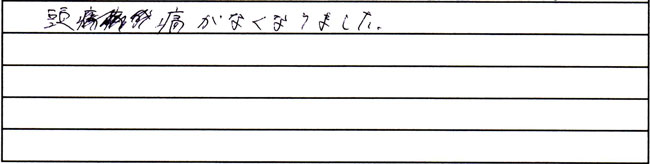 頭痛がなくなりました。